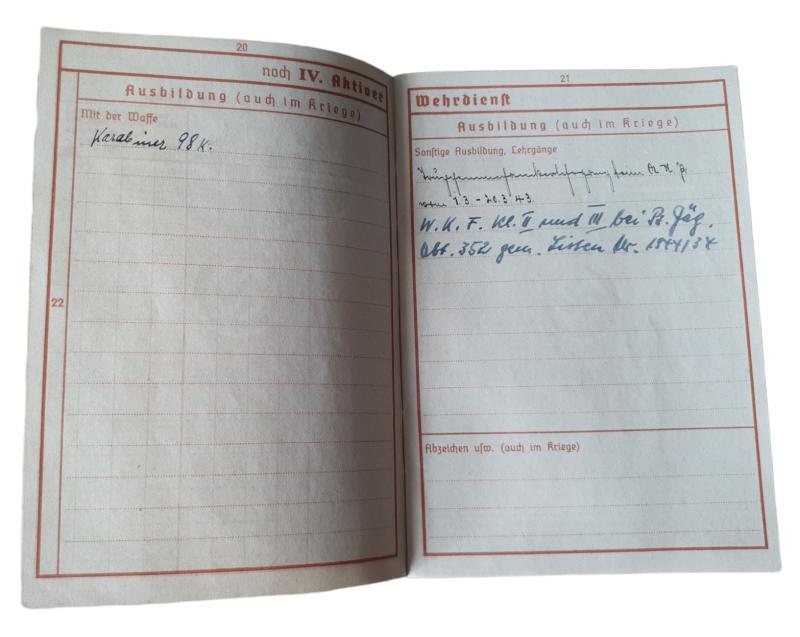 20
noch IV. Aktiver
Ausbildung (auch im Kriege)
Mit der Waffe
Karabiner 98k.
22
21
Wehrdienst
Ausbildung (auch im Kriege)
Sonstige Ausbildung, Lehrgänge
beim
vom 1.3. - 20.3.43.
W. K. F. Kl. II und III bei Pz. Jäg.
Abt. 352 gem. Listen Nr. 1844/34
Abzeichen usw. (auch im Kriege)